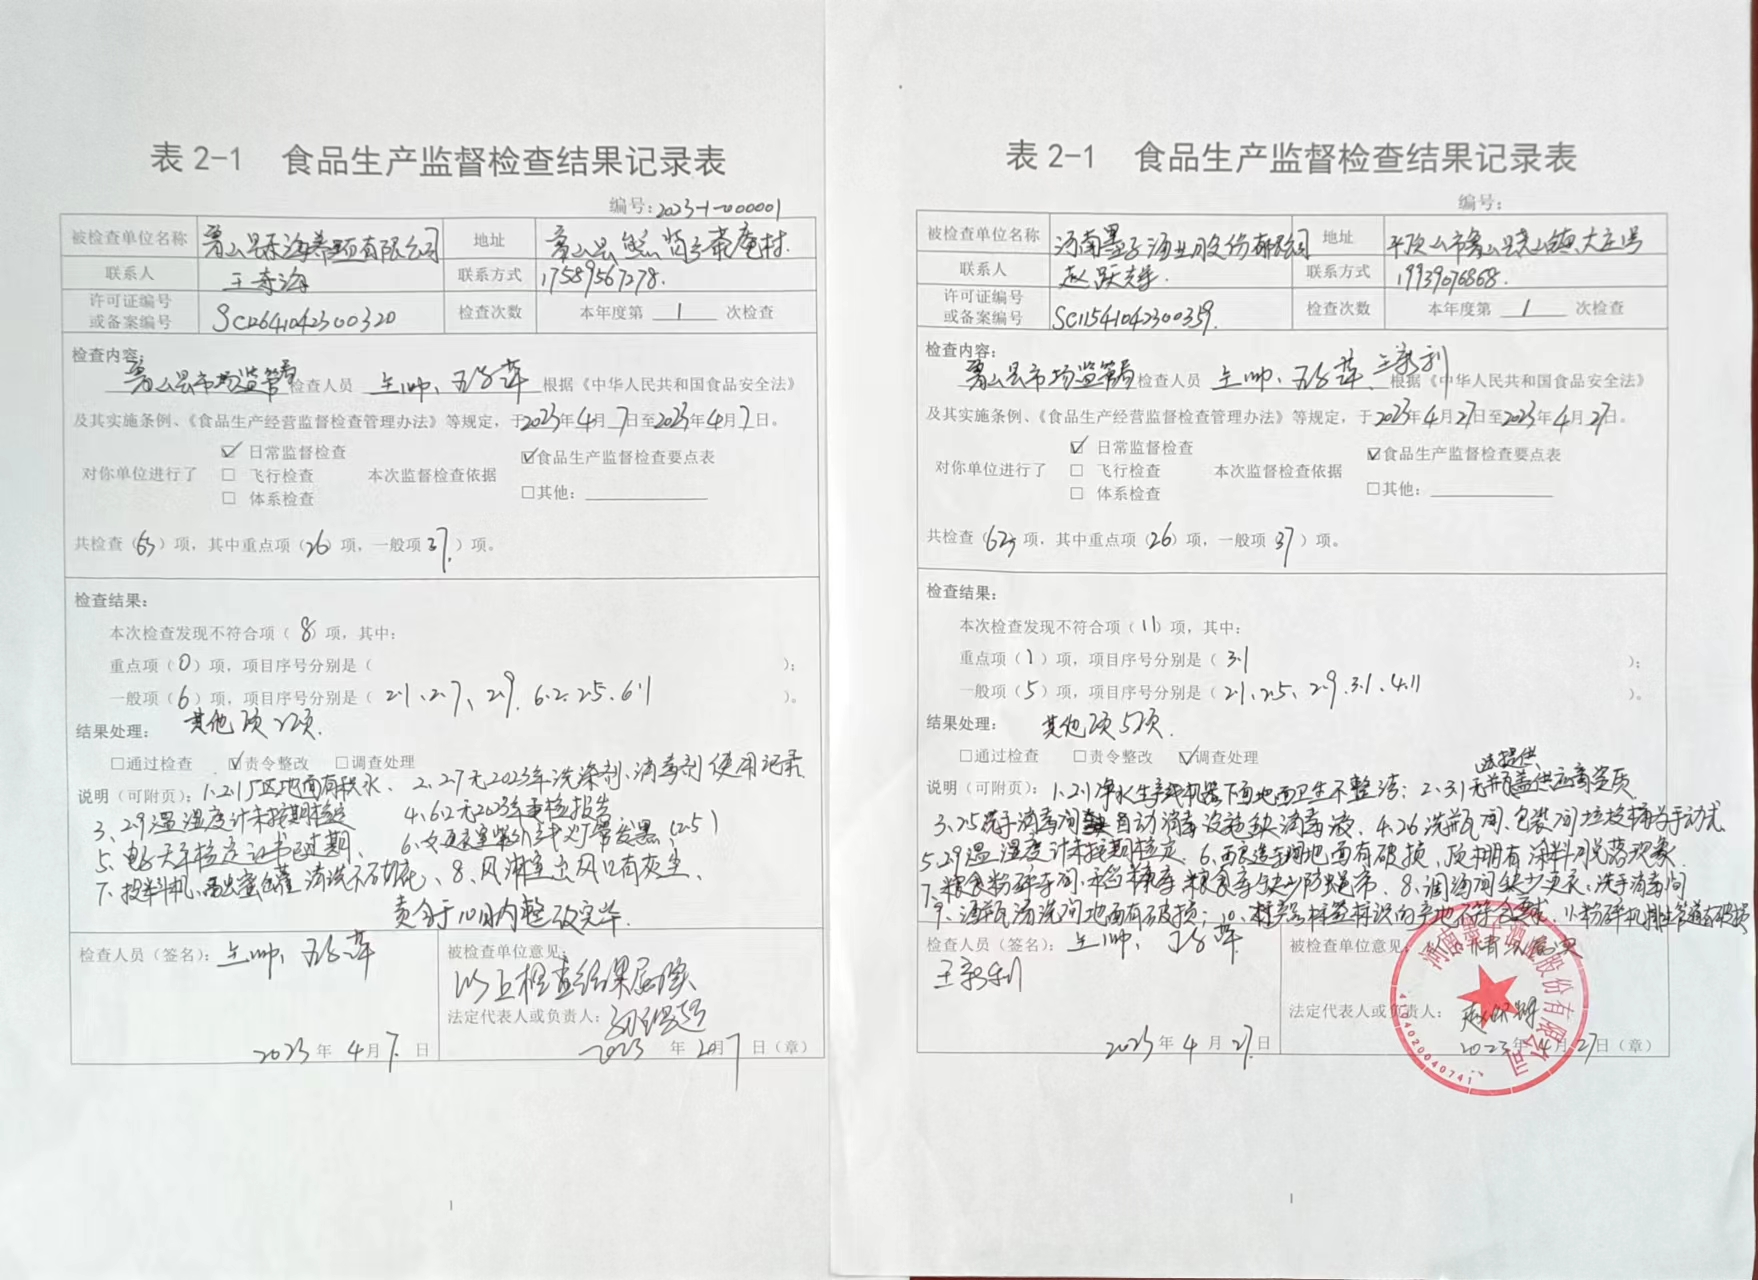 表 2-1 食品生产监督检查结果记录表
编号: 2023-1-000001
被检查单位名称 鲁山县 有限公司 地址 鲁山县 茶庵村.
联系人 王 海 联系方式 17589567278.
许可证编号
或备案编号 SC12641042300320 检查次数 本年度第 1 次检查
检查内容:
鲁山县市场监管局 检查人员 王帅、 萍 根据《中华人民共和国食品安全法》
及其实施条例、《食品生产经营监督检查管理办法》等规定，于2023年4月7日至2023年4月7日。
☑ 日常监督检查 ☑食品生产监督检查要点表
对你单位进行了 □ 飞行检查 本次监督检查依据
□ 体系检查 □其他:
共检查（63）项，其中重点项（26）项，一般项 37 ）项。
检查结果:
本次检查发现不符合项（ 8 ）项，其中:
重点项（0）项，项目序号分别是（ ）;
一般项（6）项，项目序号分别是（ 2.1、2.7、2.9. 6.2. 2.5. 6.1 ）。
结果处理: 其他项22项.
□通过检查 ☑责令整改 □调查处理
说明（可附页）: 1.2.1厂区地面有积水、 2.2.7无2023年洗涤剂、消毒剂使用记录
3、2.9温湿度计未按期检定 4.6.2无2023年 检报告
5、电子天平检定证书已过期、 6、女更衣室紫外线灯管发黑(2.5)
7、投料机、 蜜罐清洗不彻底、8、风淋室出风口有灰尘、
责令于10日内整改完毕.
检查人员（签名）: 王帅、 萍 被检查单位意见:
以上检查结果属实
法定代表人或负责人:
2023 年 4月 7. 日 2023 年 4月7 日（章）
1
表 2-1 食品生产监督检查结果记录表
编号:
被检查单位名称 河南墨子酒业股份有限公司 地址 平顶山市鲁山县尧山镇大庄
联系人 赵跃 联系方式 19939076868.
许可证编号
或备案编号 SC11541042300359. 检查次数 本年度第 1 次检查
检查内容:
鲁山县市场监管局 检查人员 王帅、 萍、王新利 根据《中华人民共和国食品安全法》
及其实施条例、《食品生产经营监督检查管理办法》等规定，于2023年4月27日至2023年4月27日。
☑ 日常监督检查 ☑食品生产监督检查要点表
对你单位进行了 □ 飞行检查 本次监督检查依据
□ 体系检查 □其他:
共检查（62 项，其中重点项（26）项，一般项 37 ）项。
检查结果:
本次检查发现不符合项（ 11 ）项，其中:
重点项（1）项，项目序号分别是（ 3.1 ）;
一般项（5）项，项目序号分别是（ 2.1、2.5、2.9.3.1.4.11 ）。
结果处理: 其他项5项.
□通过检查 □责令整改 ☑调查处理
说明（可附页）: 1.2.1净水生产线机器下面地面卫生不整洁; 2.3.1 提供无瓶盖供应商资质
3.2.5洗手消毒间 自动消毒设施缺消毒液、4.2.6洗瓶间、包装间垃圾桶为手动式
5.2.9温湿度计未按期检定、6. 地面有破损、顶棚有涂料脱落现象
7、粮食粉碎车间、 粮食库缺少防 、8、调酒间缺少更衣、洗手消毒间
9、酒瓶清洗间地面有破损; 10、 标签标识的产地不符合要求. 11粉碎机排 管道有破损
检查人员（签名）: 王帅、 萍 被检查单位意见:
王新利
法定代表人或负责人:
2023 年 4 月 27. 日 2023年4月27日（章）
河南墨子酒业股份有限公司
1